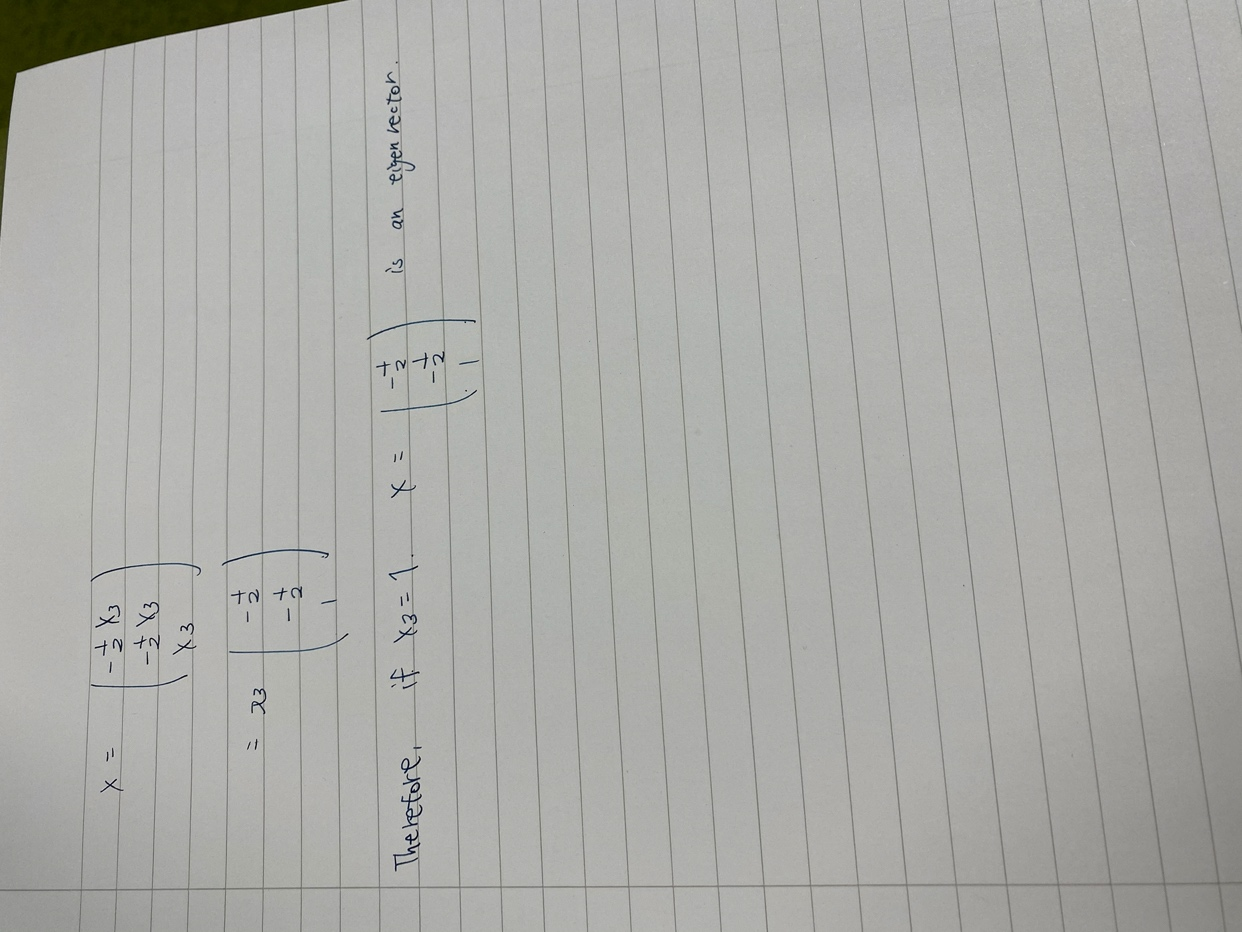 x = ( -1/2 x3
-1/2 x3
x3 )
= x3 ( -1/2
-1/2
1 )
Therefore, if x3 = 1. x = ( -1/2
-1/2
1 ) is an eigenvector.